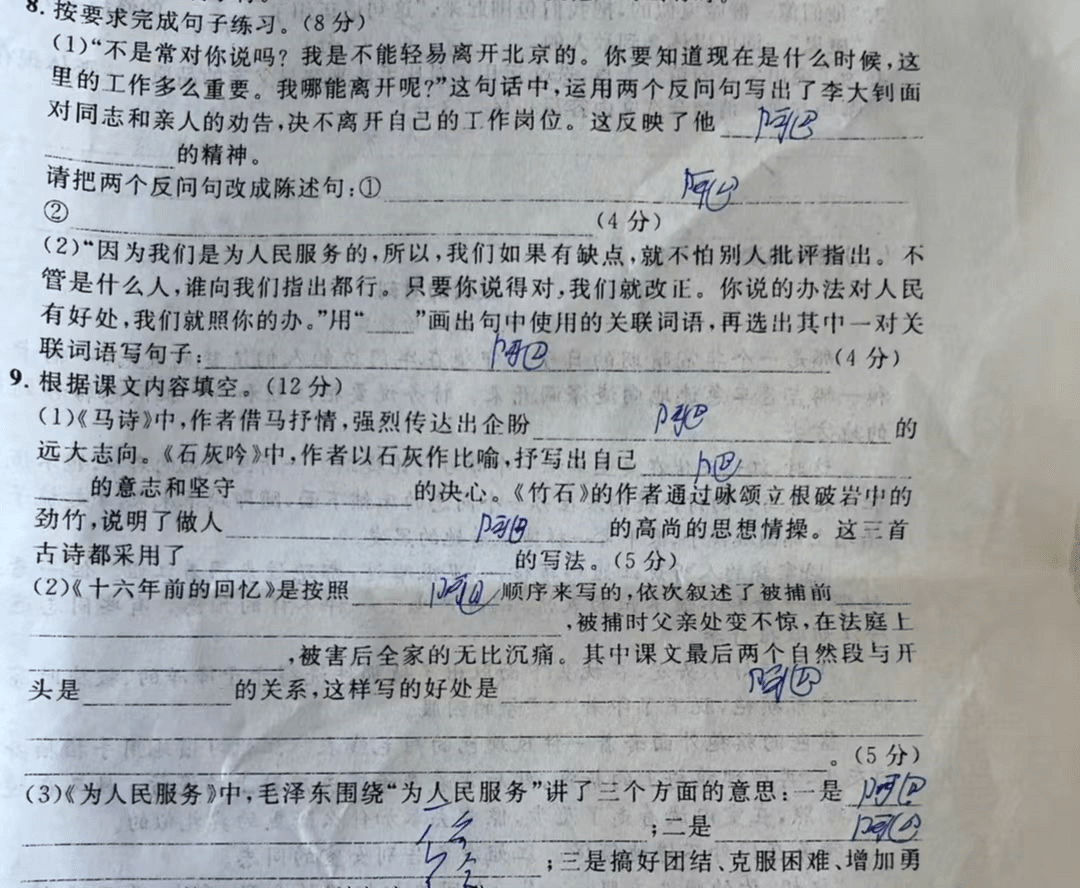 8. 按要求完成句子练习。(8分)
(1)“不是常对你说吗？我是不能轻易离开北京的。你要知道现在是什么时候,这
里的工作多么重要。我哪能离开呢?”这句话中,运用两个反问句写出了李大钊面
对同志和亲人的劝告,决不离开自己的工作岗位。这反映了他 阿巴
的精神。
请把两个反问句改成陈述句:① 阿巴
② (4分)
(2)“因为我们是为人民服务的,所以,我们如果有缺点,就不怕别人批评指出。不
管是什么人,谁向我们指出都行。只要你说得对,我们就改正。你说的办法对人民
有好处,我们就照你的办。”用“____”画出句中使用的关联词语,再选出其中一对关
联词语写句子: 阿巴 (4分)
9. 根据课文内容填空。(12分)
(1)《马诗》中,作者借马抒情,强烈传达出企盼 阿巴 的
远大志向。《石灰吟》中,作者以石灰作比喻,抒写出自己 阿巴
的意志和坚守 的决心。《竹石》的作者通过咏颂立根破岩中的
劲竹,说明了做人 阿巴 的高尚的思想情操。这三首
古诗都采用了 的写法。(5分)
(2)《十六年前的回忆》是按照 阿巴 顺序来写的,依次叙述了被捕前
,被捕时父亲处变不惊,在法庭上
,被害后全家的无比沉痛。其中课文最后两个自然段与开
头是 的关系,这样写的好处是 阿巴
。(5分)
(3)《为人民服务》中,毛泽东围绕“为人民服务”讲了三个方面的意思:一是 阿巴
;二是 阿巴
;三是搞好团结、克服困难、增加勇